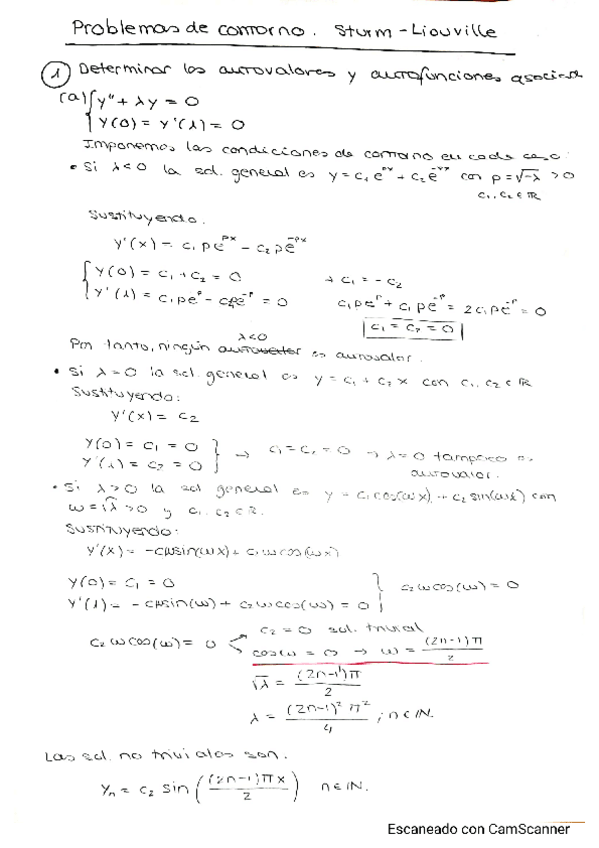 Problemas de contorno. Sturm-Liouville
① Determinar los autovalores y autofunciones asociad
(a) { y'' + λy = 0
y(0) = y'(1) = 0
Imponemos las condiciones de contorno en cada caso:
• Si λ<0 la sol. general es y = c₁e^px + c₂e^-px con p = √-λ > 0
c₁, c₂ ∈ ℝ
Sustituyendo.
y'(x) = c₁pe^px - c₂pe^-px
{ y(0) = c₁ + c₂ = 0 → c₁ = -c₂
y'(1) = c₁pe^p - c₂pe^-p = 0 c₁pe^p + c₁pe^-p = 2c₁pe^-p = 0
c₁ = c₂ = 0
Por tanto, ningún λ<0 es autovalor.
• Si λ=0 la sol. general es y = c₁ + c₂x con c₁, c₂ ∈ ℝ
Sustituyendo:
y'(x) = c₂
y(0) = c₁ = 0 } → c₁ = c₂ = 0 → λ=0 tampoco es
y'(1) = c₂ = 0 autovalor.
• Si λ>0 la sol general es y = c₁cos(ωx) + c₂sin(ωx) con
ω = √λ > 0 y c₁, c₂ ∈ ℝ.
Sustituyendo:
y'(x) = -c₁ωsin(ωx) + c₂ωcos(ωx)
y(0) = c₁ = 0 } c₂ωcos(ω) = 0
y'(1) = -c₁ωsin(ω) + c₂ωcos(ω) = 0
c₂ωcos(ω) = 0 < c₂ = 0 sol. trivial
cosω = 0 → ω = (2n-1)π/2
√λ = (2n-1)π/2
λ = (2n-1)²π²/4 ; n∈ℕ.
Las sol. no triviales son.
yₙ = c₂ sin((2n-1)πx/2) n∈ℕ.
Escaneado con CamScanner